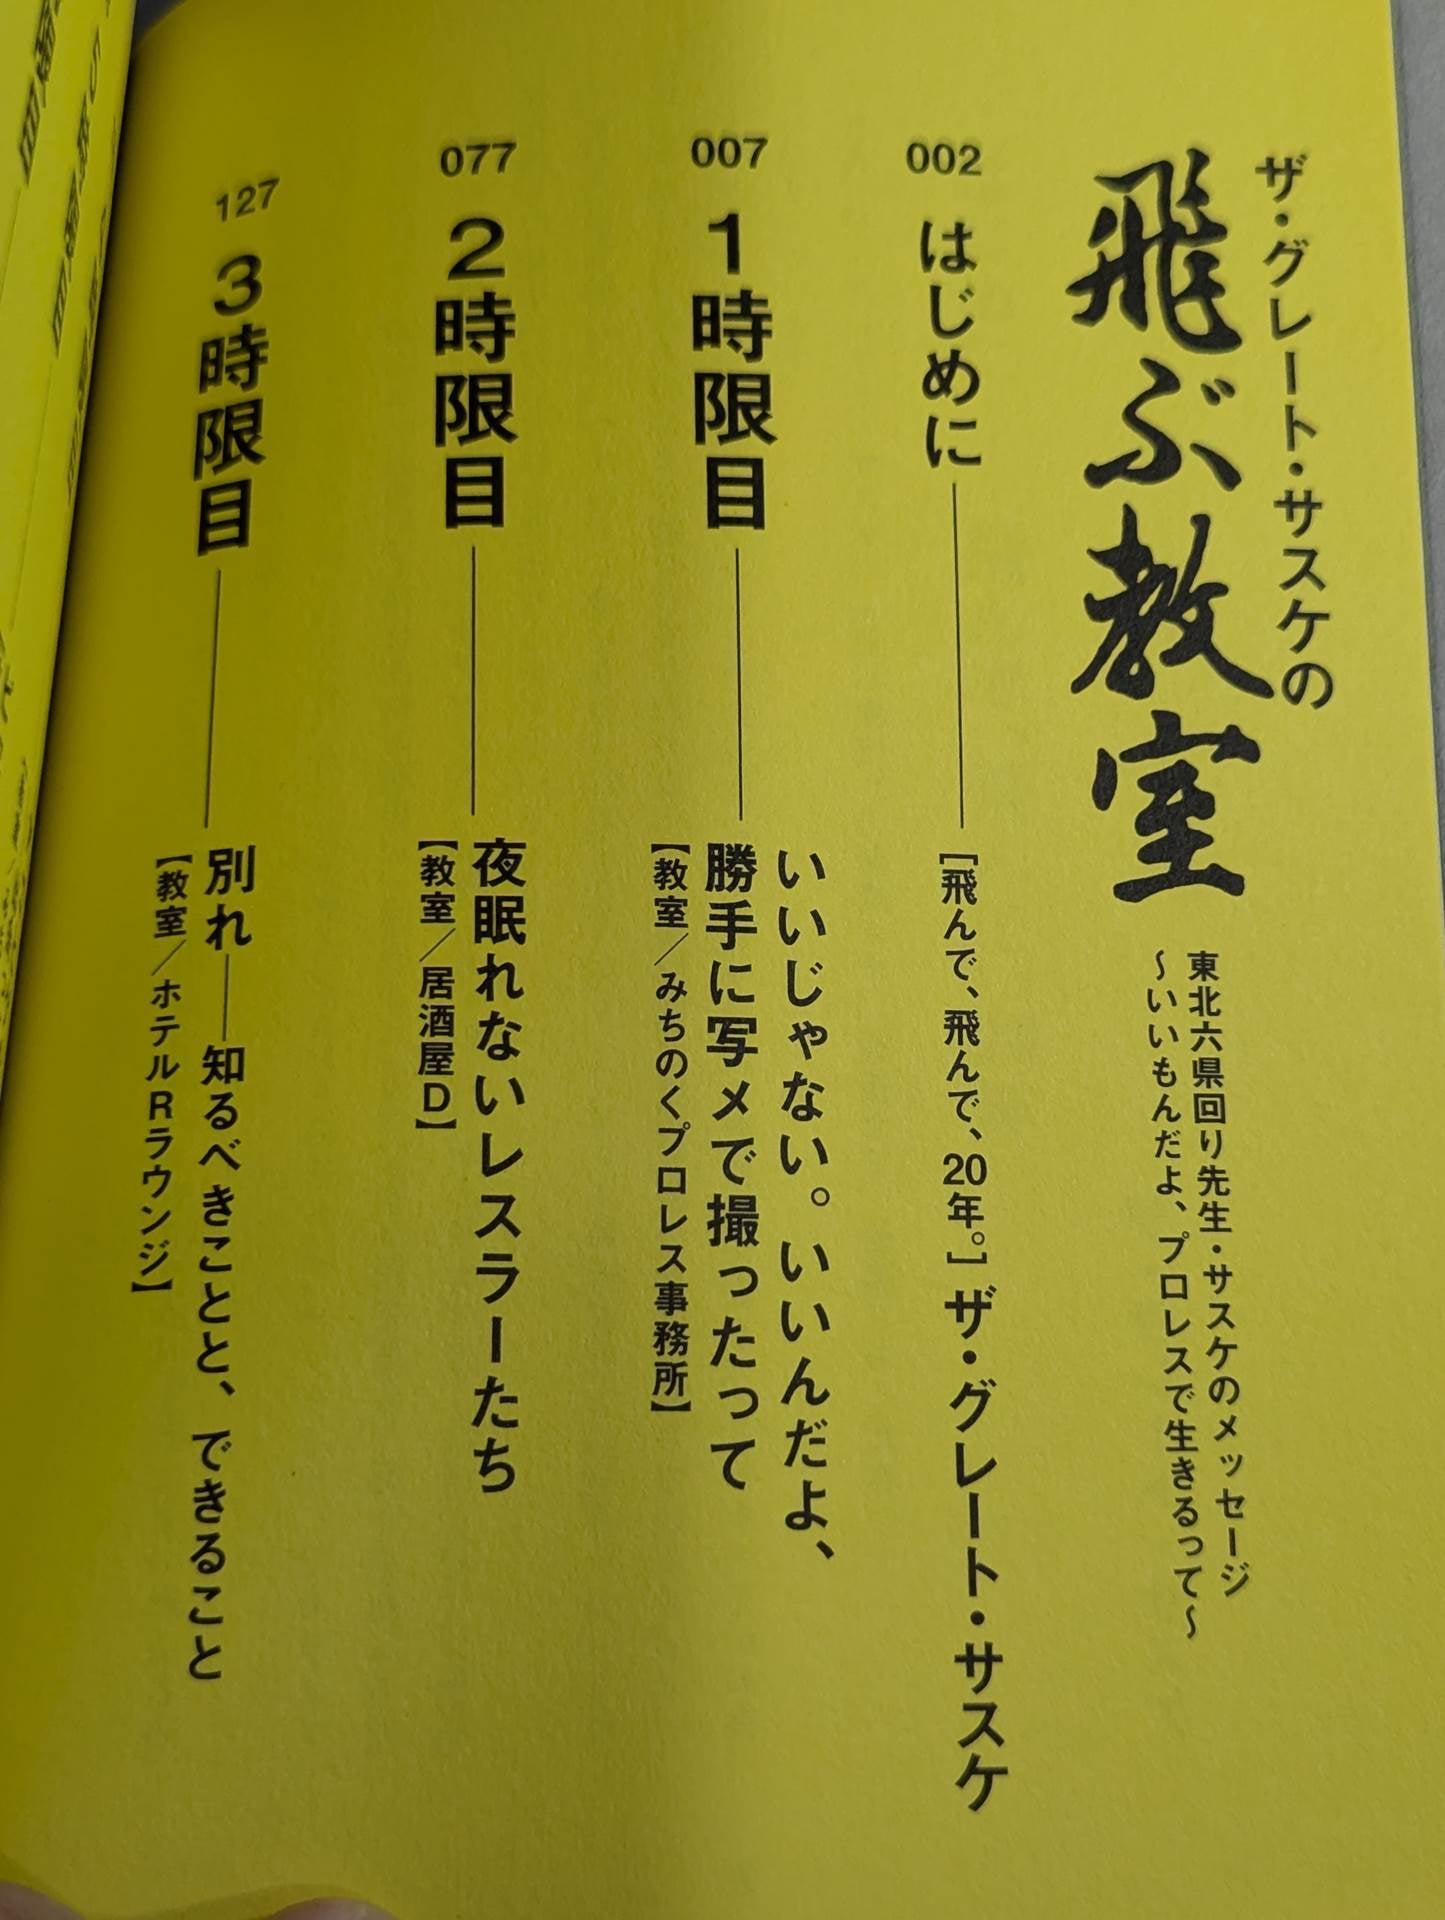 ザ・グレート・サスケの
飛ぶ教室
東北六県回り先生・サスケのメッセージ
〜いいもんだよ、プロレスで生きるって〜
002
はじめに
［飛んで、飛んで、20年。］ザ・グレート・サスケ
007
1時限目
いいじゃない。いいんだよ、
勝手に写メで撮ったって
【教室／みちのくプロレス事務所】
077
2時限目
夜眠れないレスラーたち
【教室／居酒屋D】
127
3時限目
別れ――知るべきことと、できること
【教室／ホテルRラウンジ】